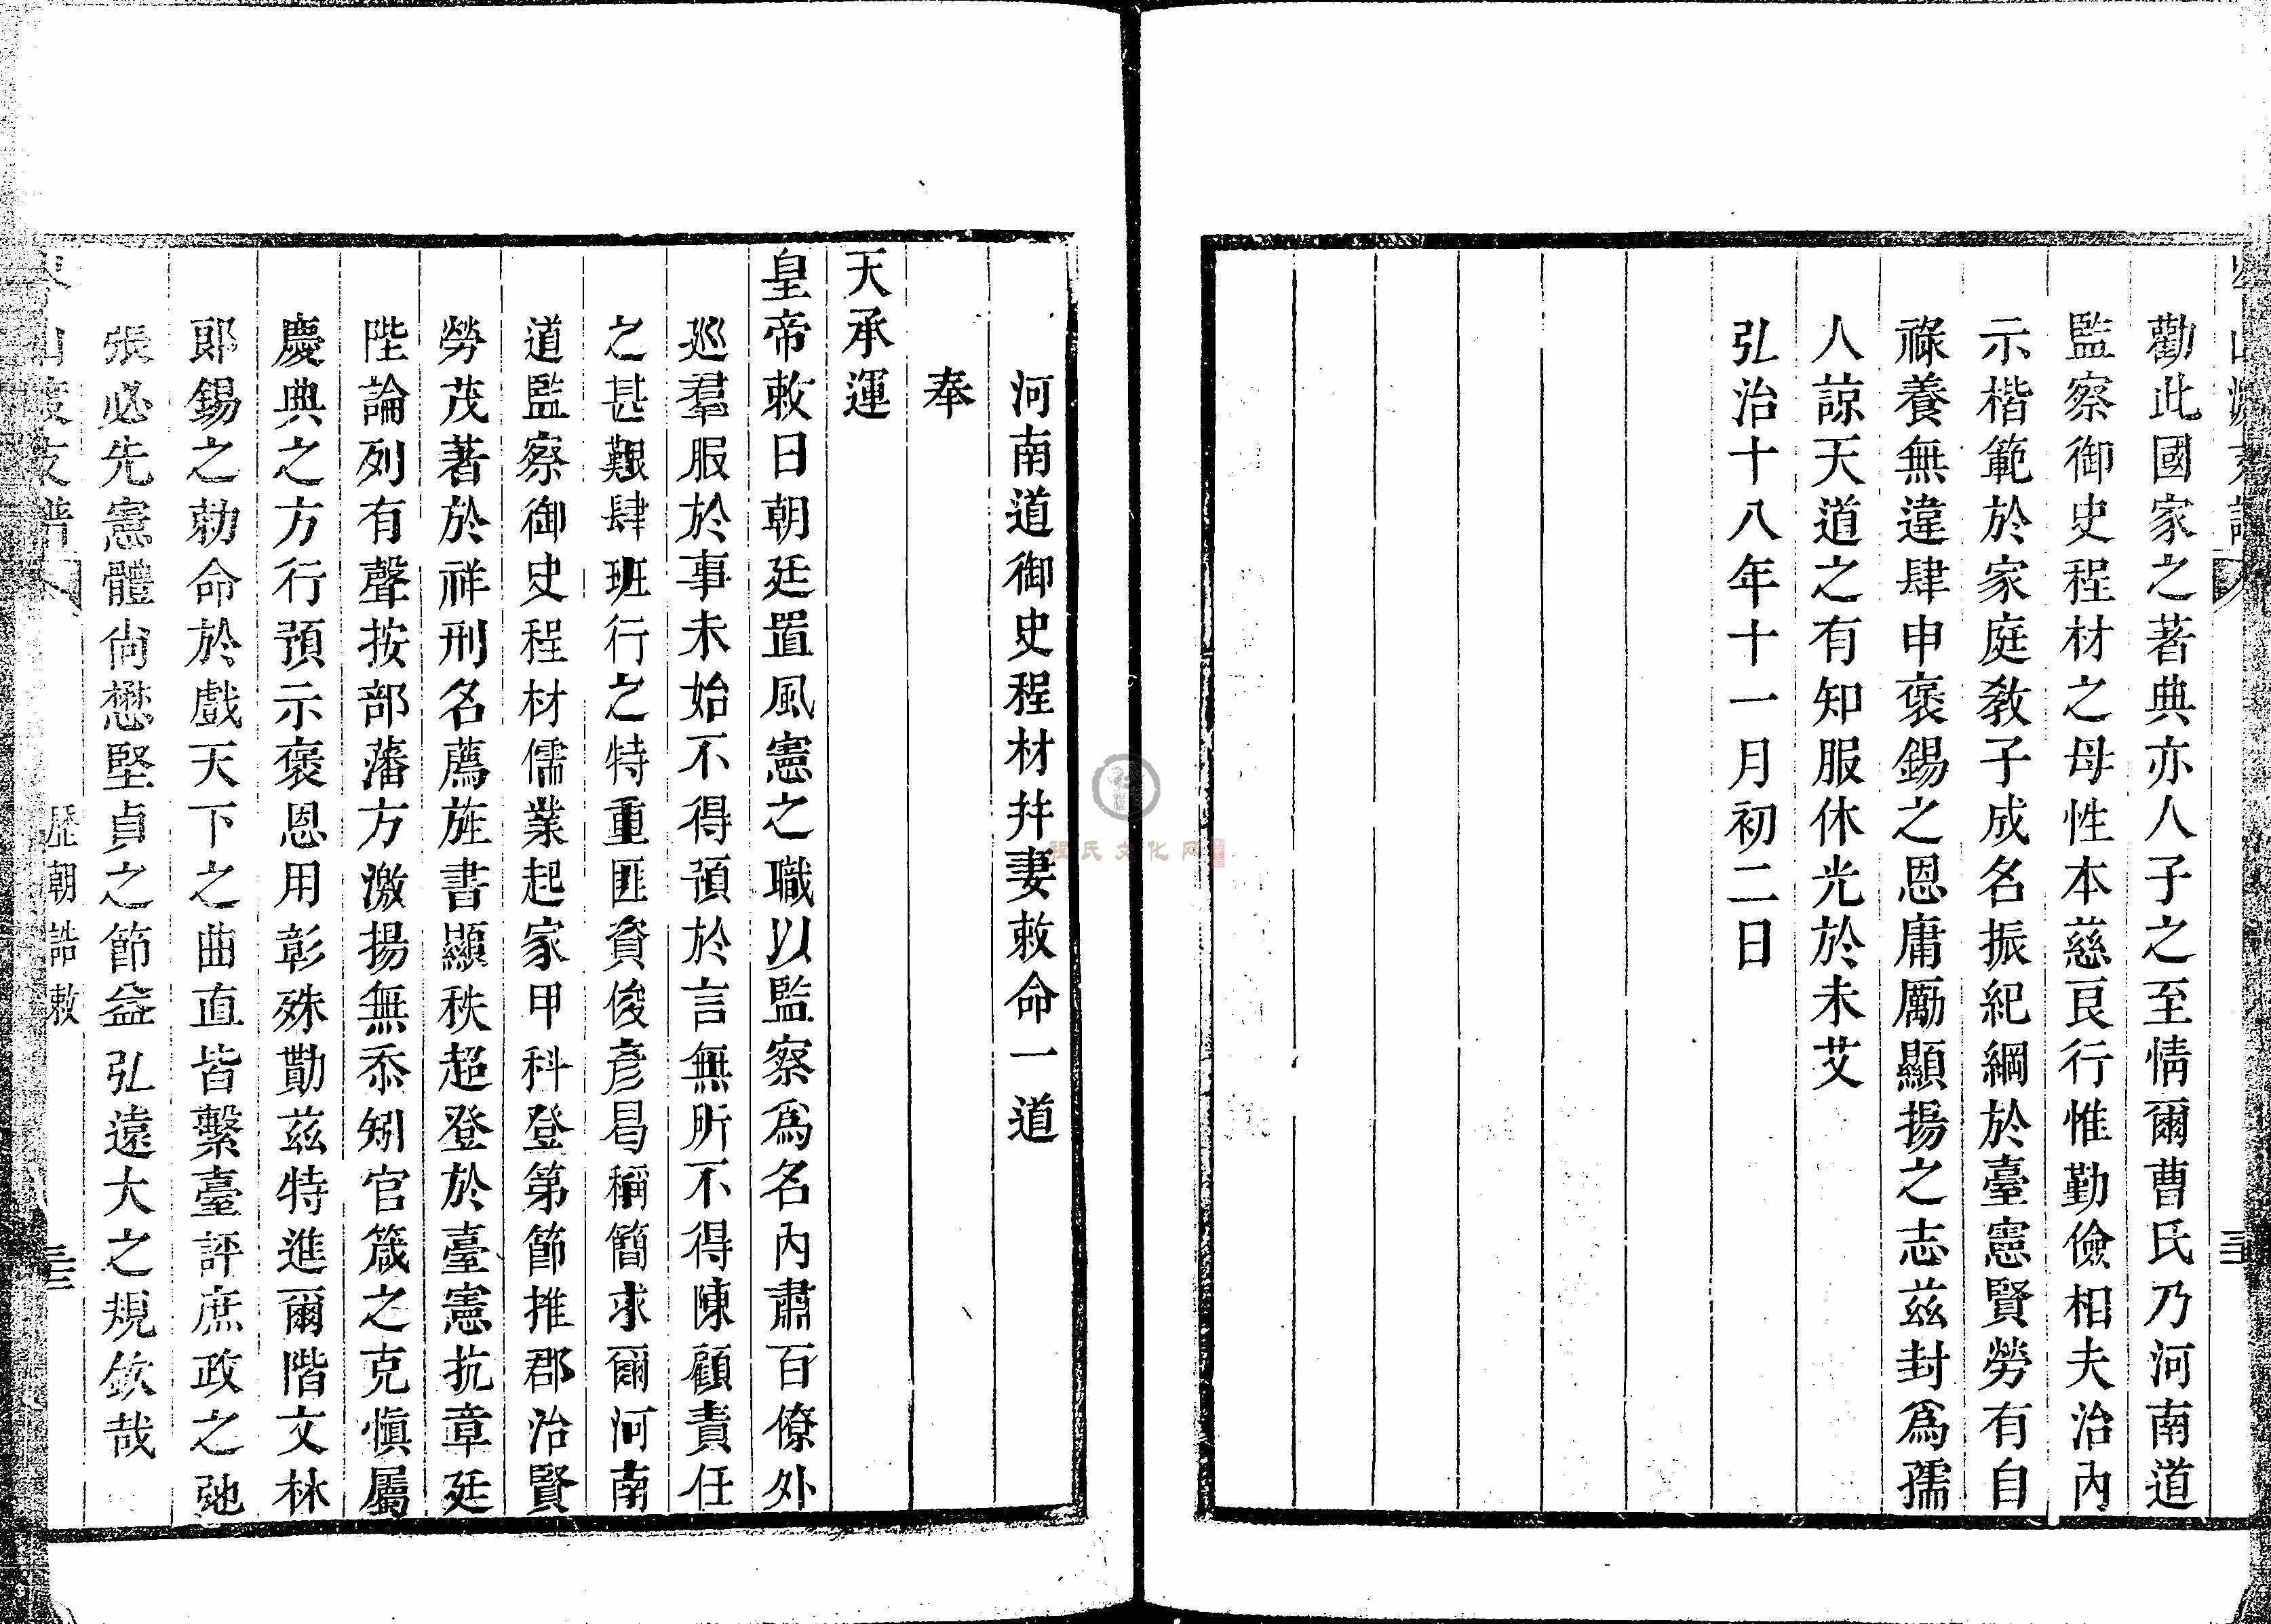 勸此國家之著典亦人子之至情爾曹氏乃河南道
監察御史程材之母性本慈良行惟勤儉相夫治內
示楷範於家庭教子成名振紀綱於臺憲賢勞有自
祿養無違肆申褒錫之恩庸勵顯揚之志茲封爲孺
人諒天道之有知服休光於未艾
弘治十八年十一月初二日
河南道御史程材并妻敕命一道
奉
天承運
皇帝敕曰朝廷置風憲之職以監察爲名內肅百僚外
巡羣服於事未始不得預於言無所不得陳顧責任
之甚艱肆班行之特重匪資俊彥曷稱簡求爾河南
道監察御史程材儒業起家甲科登第節推郡治賢
勞茂著於祥刑名薦旌書顯秩超登於臺憲抗章廷
陛論列有聲按部藩方激揚無忝矧官箴之克愼屬
慶典之方行預示褒恩用彰殊勩茲特進爾階文林
郎錫之勑命於戲天下之曲直皆繫臺評庶政之弛
張必先憲體尙懋堅貞之節益弘遠大之規欽哉
歷朝誥敕
程氏文化网